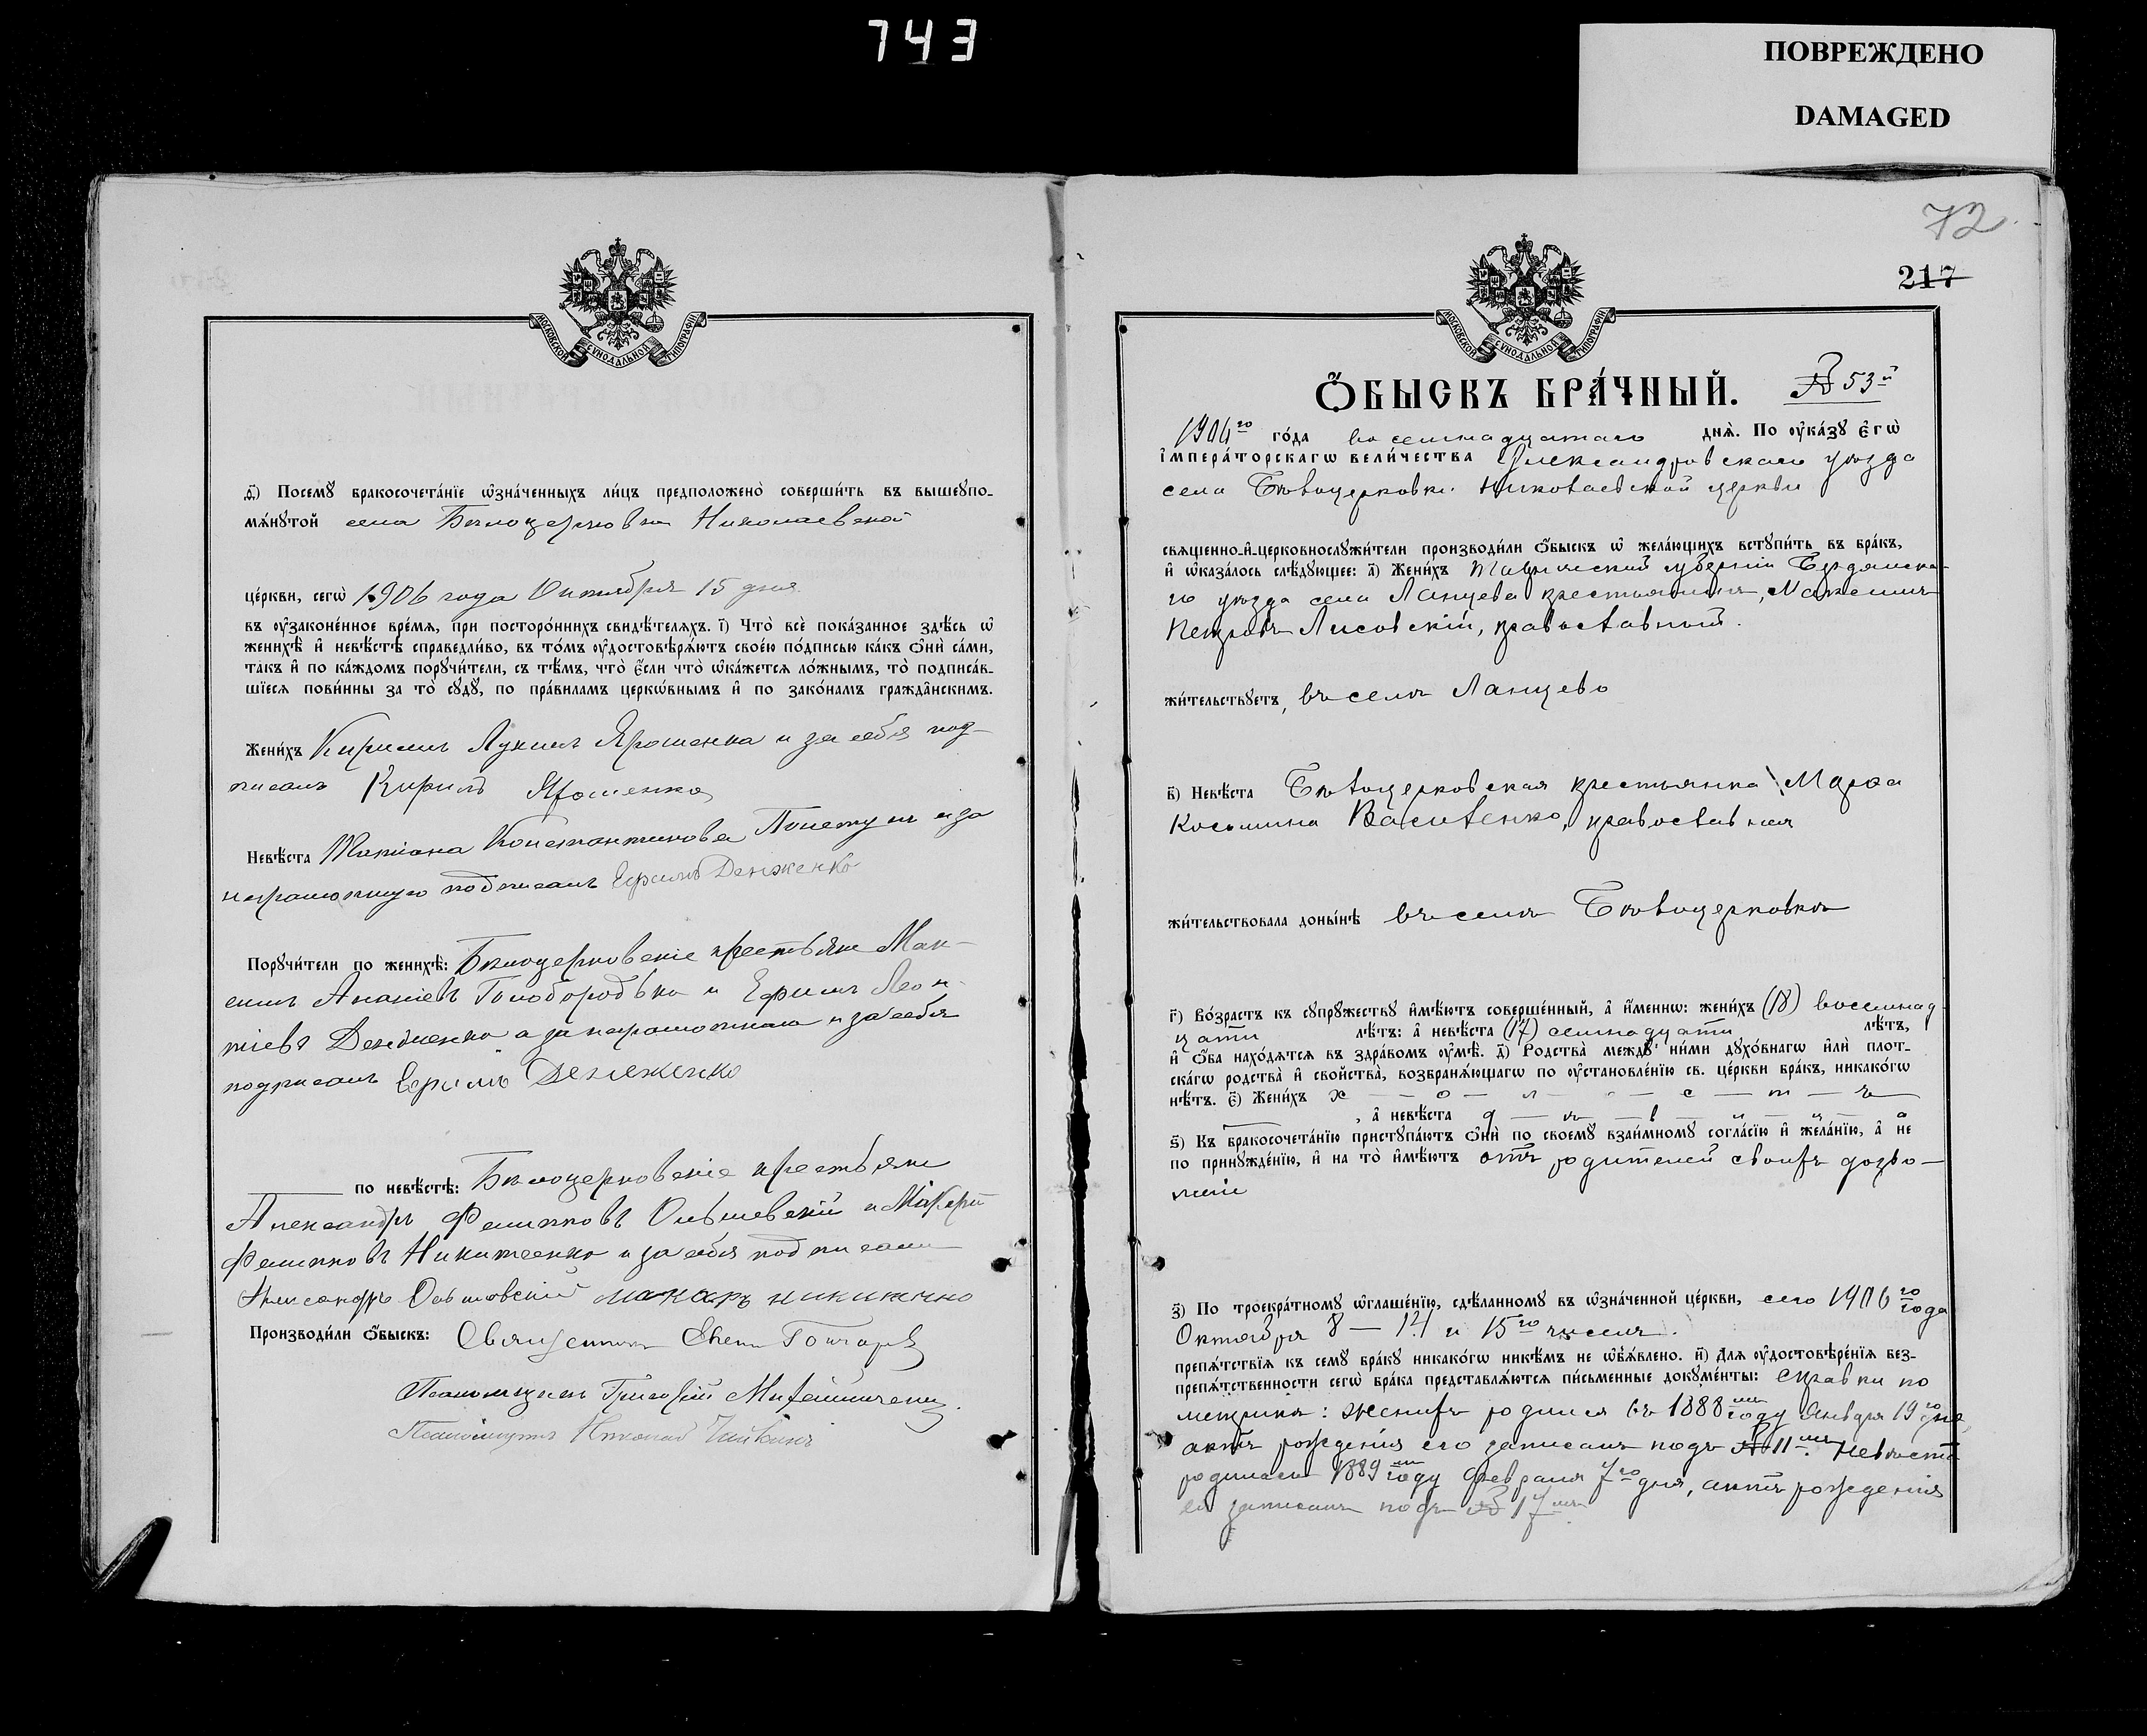 743
ПОВРЕЖДЕНО
DAMAGED
МОСКОВСКОЙ СУНОДАЛЬНОЙ ТИПОГРАФІИ
ѳ҃) Посемꙋ бракосочета́нїе ѡ҆зна́ченныхъ ли́цъ предположено̀ соверши́ть въ вышеꙋпо-
мѧ́нꙋтой села Бѣлоцерковки Николаевской
це́ркви, сегѡ̀ 1906 года Октября 15 дня
въ ᲂу҆законе́нное вре́мѧ, при посторо́ннихъ свидѣ́телѧхъ. і҃) Что̀ всѐ пока́занное здѣ́сь ѡ҆
женихѣ̀ и҆ невѣ́стѣ справедли́во, въ то́мъ ᲂу҆достовѣрѧ́ютъ свое́ю по́дписью ка́къ ѻ҆нѝ са́ми,
та́къ и҆ по ка́ждомъ порꙋчи́тели, съ тѣ́мъ, что̀ є҆́сли что̀ ѡ҆ка́жетсѧ ло́жнымъ, то̀ подписа́в-
шїесѧ пови́нны за то̀ сꙋдꙋ̀, по пра́виламъ церко́внымъ и҆ по зако́намъ гражда̑нскимъ.
Жени́хъ Кирилъ Лукинъ Ярошенко и за себя под-
писалъ Кирилъ Ярошенко
Невѣ́ста Татіана Константинова и за
неграмотную подписалъ Ефимъ Денженко
Порꙋчи́тели по женихѣ̀: Бѣлоцерковскіе крестьяне Мак-
симъ Ананіевъ Голобородько и Ефимъ Леон-
тіевъ а за неграмотнаго и за себя
подписалъ Ефимъ
по невѣ́стѣ: Бѣлоцерковскіе крестьяне
Александръ Филипповъ Ольшевскій и Макарій
Филипповъ Никитченко и за себя подписали
Александръ Ольшовскій макаръ никитчно
Производи́ли ѻ҆́быскъ: Священникъ Гончаровъ
Псаломщикъ Григорій
Псаломщикъ Николай
72
217
МОСКОВСКОЙ СУНОДАЛЬНОЙ ТИПОГРАФІИ
Ѻ҆́БЫСКЪ БРА́ЧНЫЙ. № 53й
1906го го́да восемнадцатаго днѧ̀. По ᲂу҆ка́зꙋ є҆гѡ̀
і҆мпера́торскагѡ вели́чества Александровскаго уѣзда
села Бѣлоцерковки Николаевской церкви
свѧщенно-и҆-церковнослꙋжи́тели производи́ли ѻ҆́быскъ ѡ҆ жела́ющихъ встꙋпи́ть въ бра́къ,
и҆ ѡ҆каза́лось слѣ́дꙋющее: а҃) Жени́хъ Таврической губерніи Бердянска-
го уѣзда села Ланцева крестьянинъ, Максимъ
Петровъ Лисовскій, православный.
жи́тельствꙋетъ, въ селѣ Ланцево
в҃) Невѣ́ста Бѣлоцерковская крестьянка Марѳа
Косьмина Василенко, православная
жи́тельствовала доны́нѣ въ селѣ Бѣлоцерковкѣ
г҃) Во́зрастъ къ сꙋпрꙋжествꙋ и҆мѣ́ютъ соверше́нный, а҆ и҆́меннѡ: жени́хъ (18) восемнад
цати лѣ́тъ: а҆ невѣ́ста (17) семнадцати лѣ́тъ,
и҆ ѻ҆́ба нахо́дѧтсѧ въ здра́вомъ ᲂу҆мѣ̀. д҃) Родства̀ междꙋ̀ ни́ми дꙋхо́внагѡ и҆лѝ плот-
ска́гѡ родства̀ и҆ сво́йства, возбранѧ́ющагѡ по ᲂу҆становле́нїю св. це́ркви бра́къ, никако́гѡ
нѣ́тъ. є҃) Жени́хъ х — о — л — о — с — т — ъ
, а҆ невѣ́ста д — ѣ — в — и — ц — а
ѕ҃) Къ бракосочета́нїю пристꙋпа́ютъ ѻ҆нѝ по своемꙋ̀ взаи́мномꙋ согла́сїю и҆ жела́нїю, а҆ не
по принꙋжде́нїю, и҆ на то̀ и҆мѣ́ютъ отъ родителей своихъ дозво-
леніе
з҃) По троекра́тномꙋ ѡ҆глаше́нїю, сдѣ́ланномꙋ въ ѡ҆зна́ченной це́ркви, сего 1906го года
Октября 8 — 14 и 15го числа.
препѧ́тствїѧ къ семꙋ̀ бра́кꙋ никако́гѡ никѣ́мъ не ѡ҆б̾ѧ́влено. и҃) Длѧ ᲂу҆достовѣре́нїѧ без-
препѧ́тственности сегѡ̀ бра́ка представлѧ́ютсѧ пи́сьменные докꙋме́нты: справки по
метрикѣ: женихъ родился въ 1888мъ году Января 19го дня,
актъ рожденія его записанъ подъ № 11мъ. Невѣста
родилась 1889мъ году Февраля 7го дня, актъ рожденія
ея записанъ подъ № 17мъ.